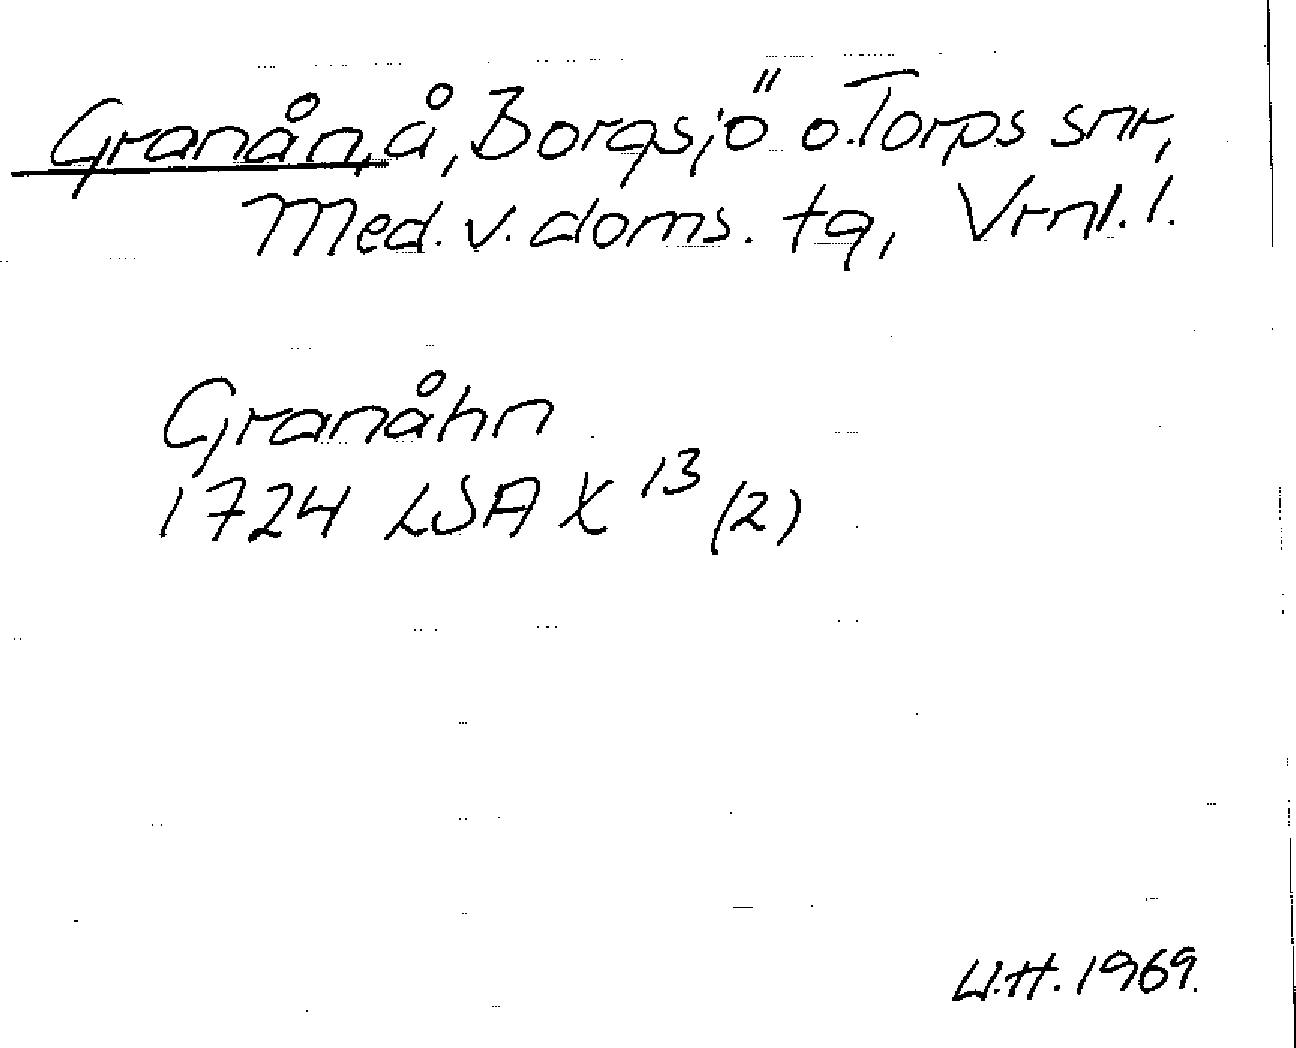 Granån, å, Borgsjö o. Torps snr,
Med. v. doms. tg, Vrnl. l.
Granåhn
1724 LSA X 13 (2)
U.H. 1969.